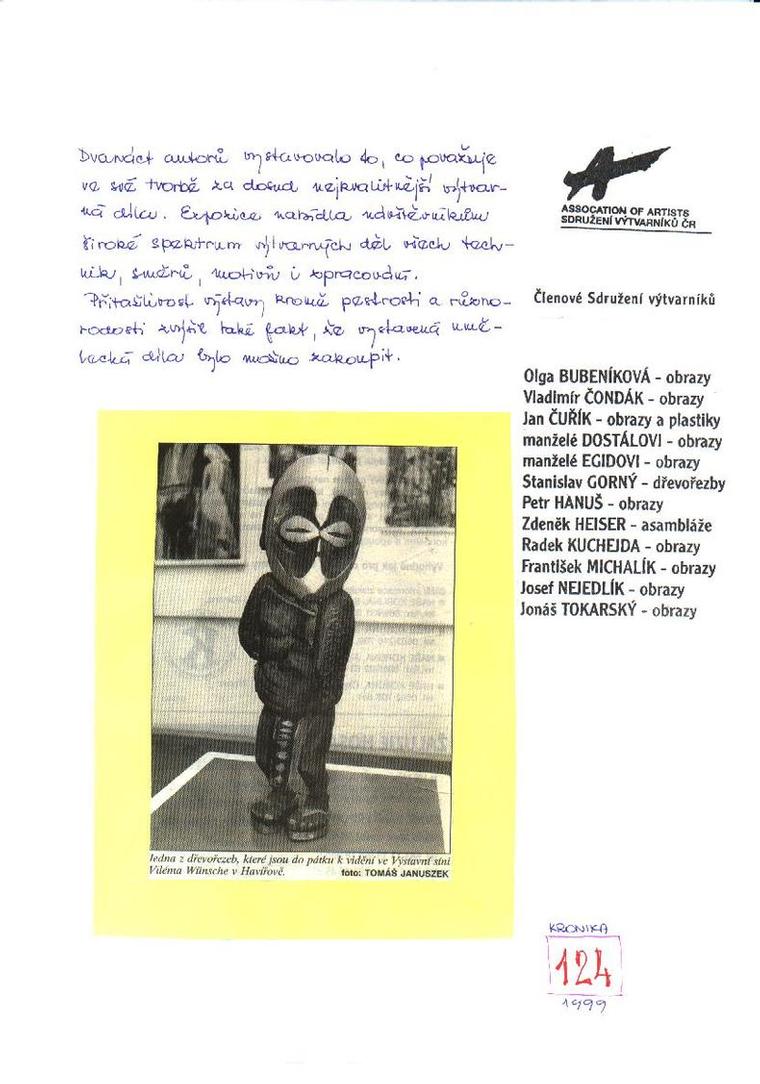 Dvanáct autorů vystavovalo to, co považuje
ve své tvorbě za dosud nejkvalitnější výtvar-
ná díla. Expozice nabídla návštěvníkům
široké spektrum výtvarných děl všech tech-
nik, směrů, motivů i zpracování.
Přitažlivost výstavy kromě pestrosti a různo-
rodosti zvýšil také fakt, že vystavená umě-
lecká díla bylo možno zakoupit.
ASSOCATION OF ARTISTS
SDRUŽENÍ VÝTVARNÍKŮ ČR
Členové Sdružení výtvarníků
Olga BUBENÍKOVÁ - obrazy
Vladimír ČONDÁK - obrazy
Jan ČUŘÍK - obrazy a plastiky
manželé DOSTÁLOVI - obrazy
manželé EGIDOVI - obrazy
Stanislav GORNÝ - dřevořezby
Petr HANUŠ - obrazy
Zdeněk HEISER - asambláže
Radek KUCHEJDA - obrazy
František MICHALÍK - obrazy
Josef NEJEDLÍK - obrazy
Jonáš TOKARSKÝ - obrazy
Jedna z dřevořezeb, které jsou do pátku k vidění ve Výstavní síni
Viléma Wünsche v Havířově. foto: TOMÁŠ JANUSZEK
KRONIKA
124
1999